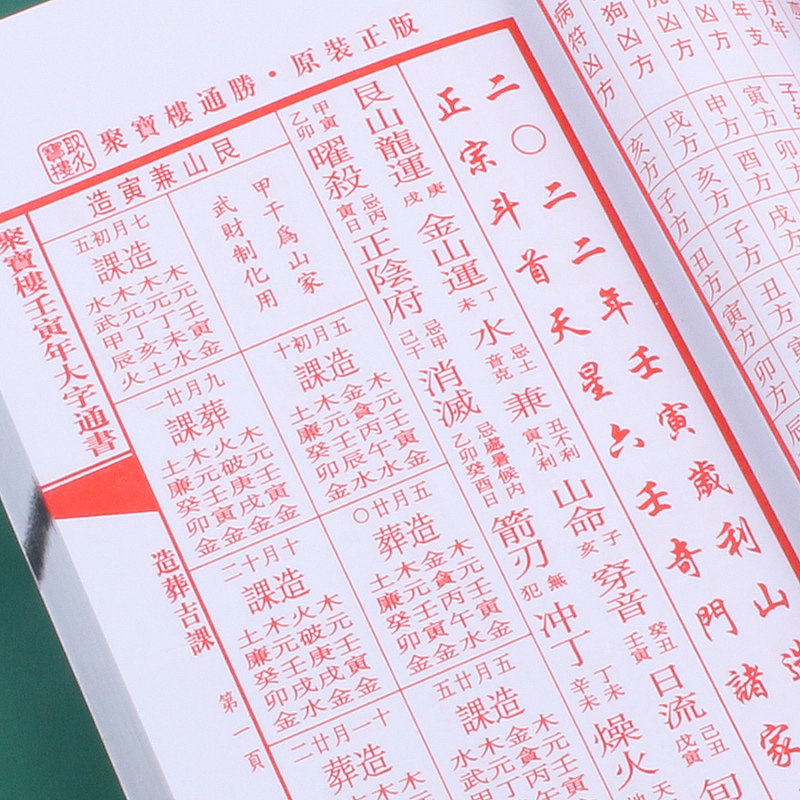 聚寶樓通勝・原裝正版
病符凶方
狗凶方
虎凶方
凶方
年支
子年
寅方
申方
戌方
亥方
卯方
酉方
亥方
子方
戌方
子方
丑方
丑方
寅方
卯方
二〇二二年壬寅歲利山造
正宗斗首天星六壬奇門諸家
艮山龍運 庚戌 金山運 丁未 水 忌土音克 兼 丑不利寅小利 山命 子亥 穿音 癸丑壬寅 日流 己丑戊寅 旬
甲寅乙卯 曜殺 忌丙寅日 正陰府 忌甲己干 消滅 忌處暑候內乙卯癸酉日 箭刃 無犯 冲丁 丁未辛未 燥火
艮山兼寅造
甲干為山家
武財制化用
五月初十
造課
木元壬寅金
金貪丙午水
木元壬辰水
土廉癸卯金
五月廿〇
造葬
木元壬寅金
金貪丙午水
木元壬寅金
土廉癸卯金
五月廿五
造課
木元壬
金貪丙午
木元丁
水武甲
七月初五
造課
木元壬寅金
木元丁未水
木元丁亥土
水武甲辰火
九月廿一
葬課
木元壬寅金
火破庚戌金
木元壬寅金
土廉癸卯金
十月十二
造課
木元壬寅金
火破庚戌金
木元壬戌水
土廉癸卯金
十一月廿二
造葬
聚寶樓壬寅年大字通書
造葬吉課
第一頁